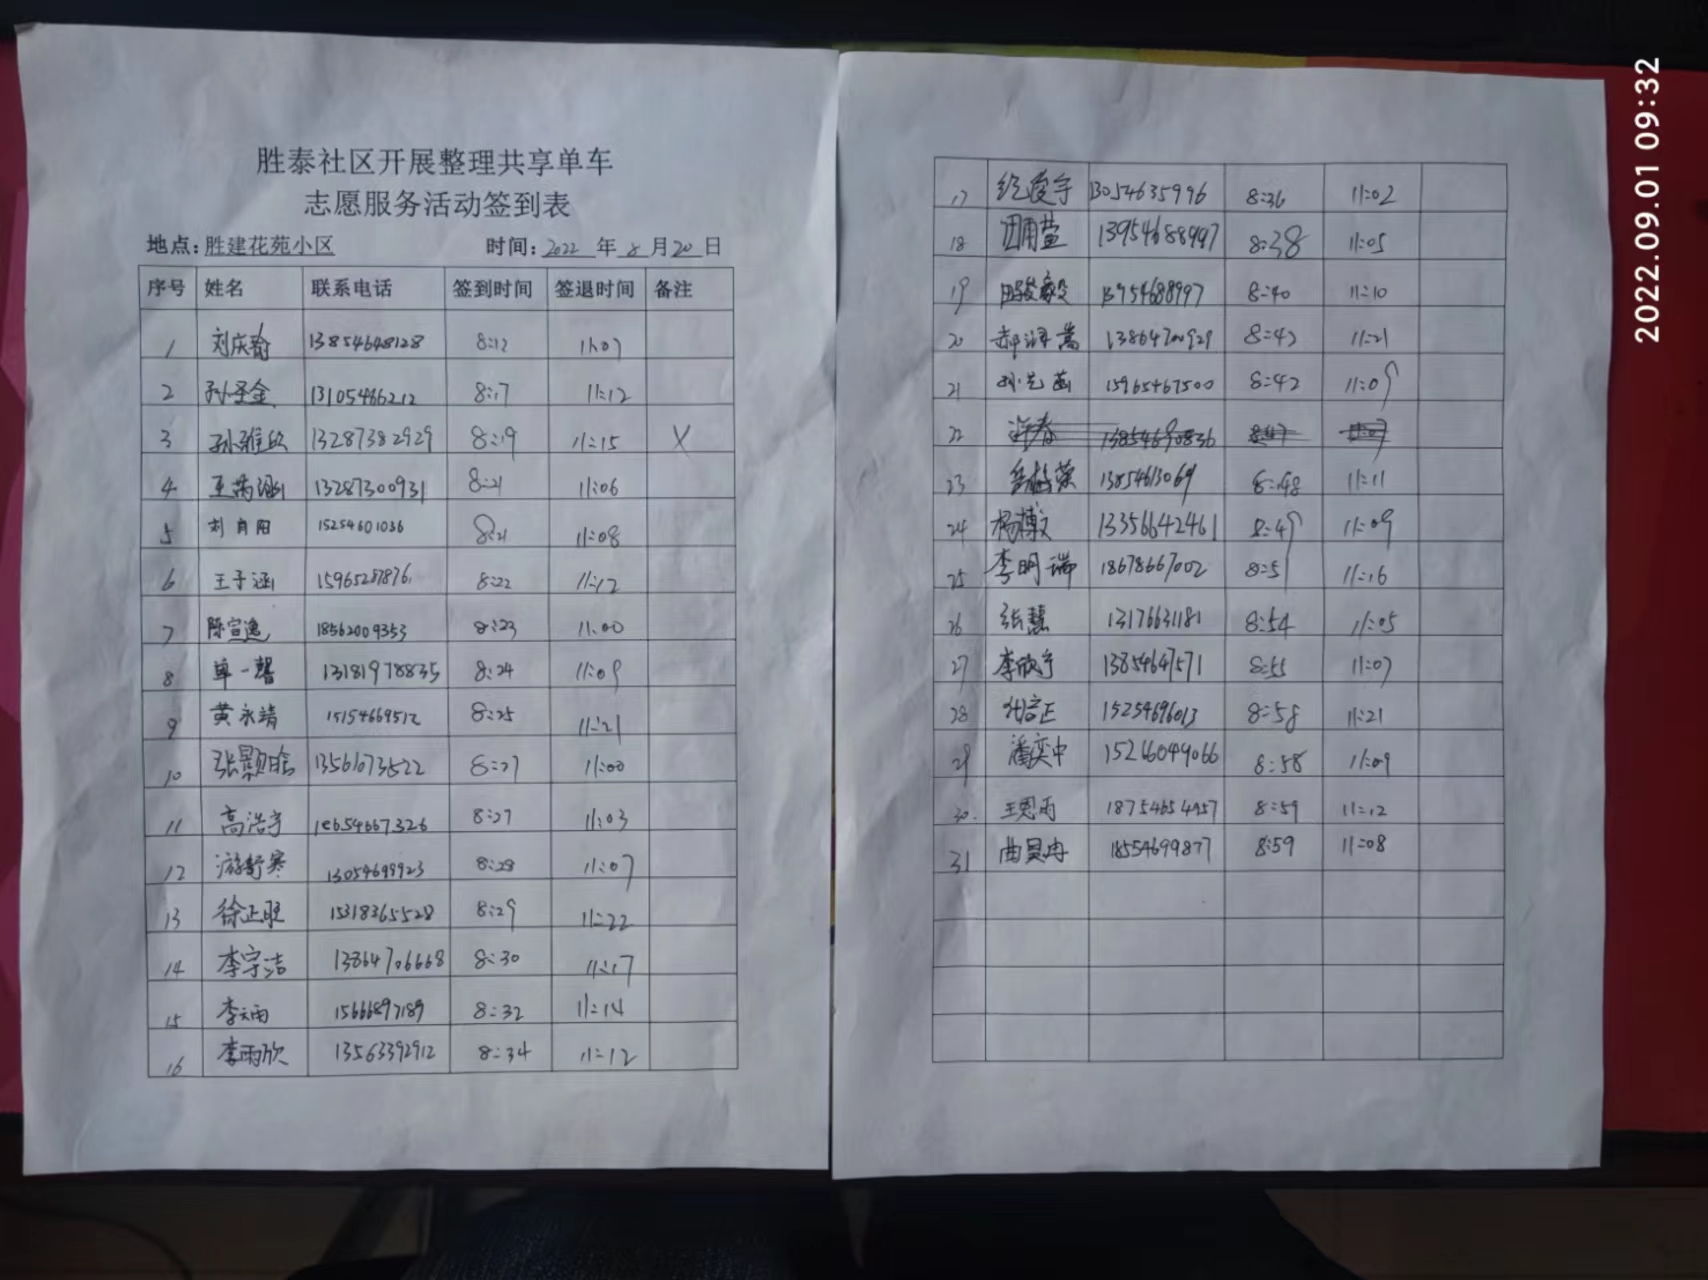 胜泰社区开展整理共享单车
志愿服务活动签到表
地点:胜建花苑小区 时间:2022年8月20日
序号 姓名 联系电话 签到时间 签退时间 备注
1 刘庆瑜 13854648128 8:12 11:07
2 孙圣金 13105466212 8:17 11:12
3 孙雅欣 13287382929 8:19 11:15 X
4 王芮涵 13287300931 8:21 11:06
5 刘自阳 15254601036 8:21 11:08
6 王子涵 15965287876 8:22 11:12
7 陈宣逸 18562009353 8:23 11:00
8 单一馨 13181978835 8:24 11:09
9 黄永靖 15154669512 8:25 11:21
10 张颢晗 13561073522 8:27 11:00
11 高浩宇 18654667326 8:27 11:03
12 游舒寒 13054699923 8:28 11:07
13 徐正旺 15318365528 8:29 11:22
14 李宇洁 13864706668 8:30 11:17
15 李天雨 15666897189 8:32 11:14
16 李雨欣 13563392912 8:34 11:12
17 13054635996 8:36 11:02
18 13954688997 8:38 11:05
19 13954688997 8:40 11:10
20 郝泽嵩 13864700929 8:42 11:21
21 孙艺菡 15965467500 8:42 11:09
22 13854690836
23 1385461306 8:48 11:11
24 杨博文 13356642461 8:49 11:09
25 李明瑞 18678667002 8:51 11:16
26 张慧 13176631181 8:54 11:05
27 李欣宇 13854647571 8:55 11:07
28 15254696013 8:58 11:21
29 潘奕中 15266049066 8:58 11:09
30 王思雨 18754654957 8:59 11:12
31 曲昊冉 18554699877 8:59 11:08
2022.09.01 09:32